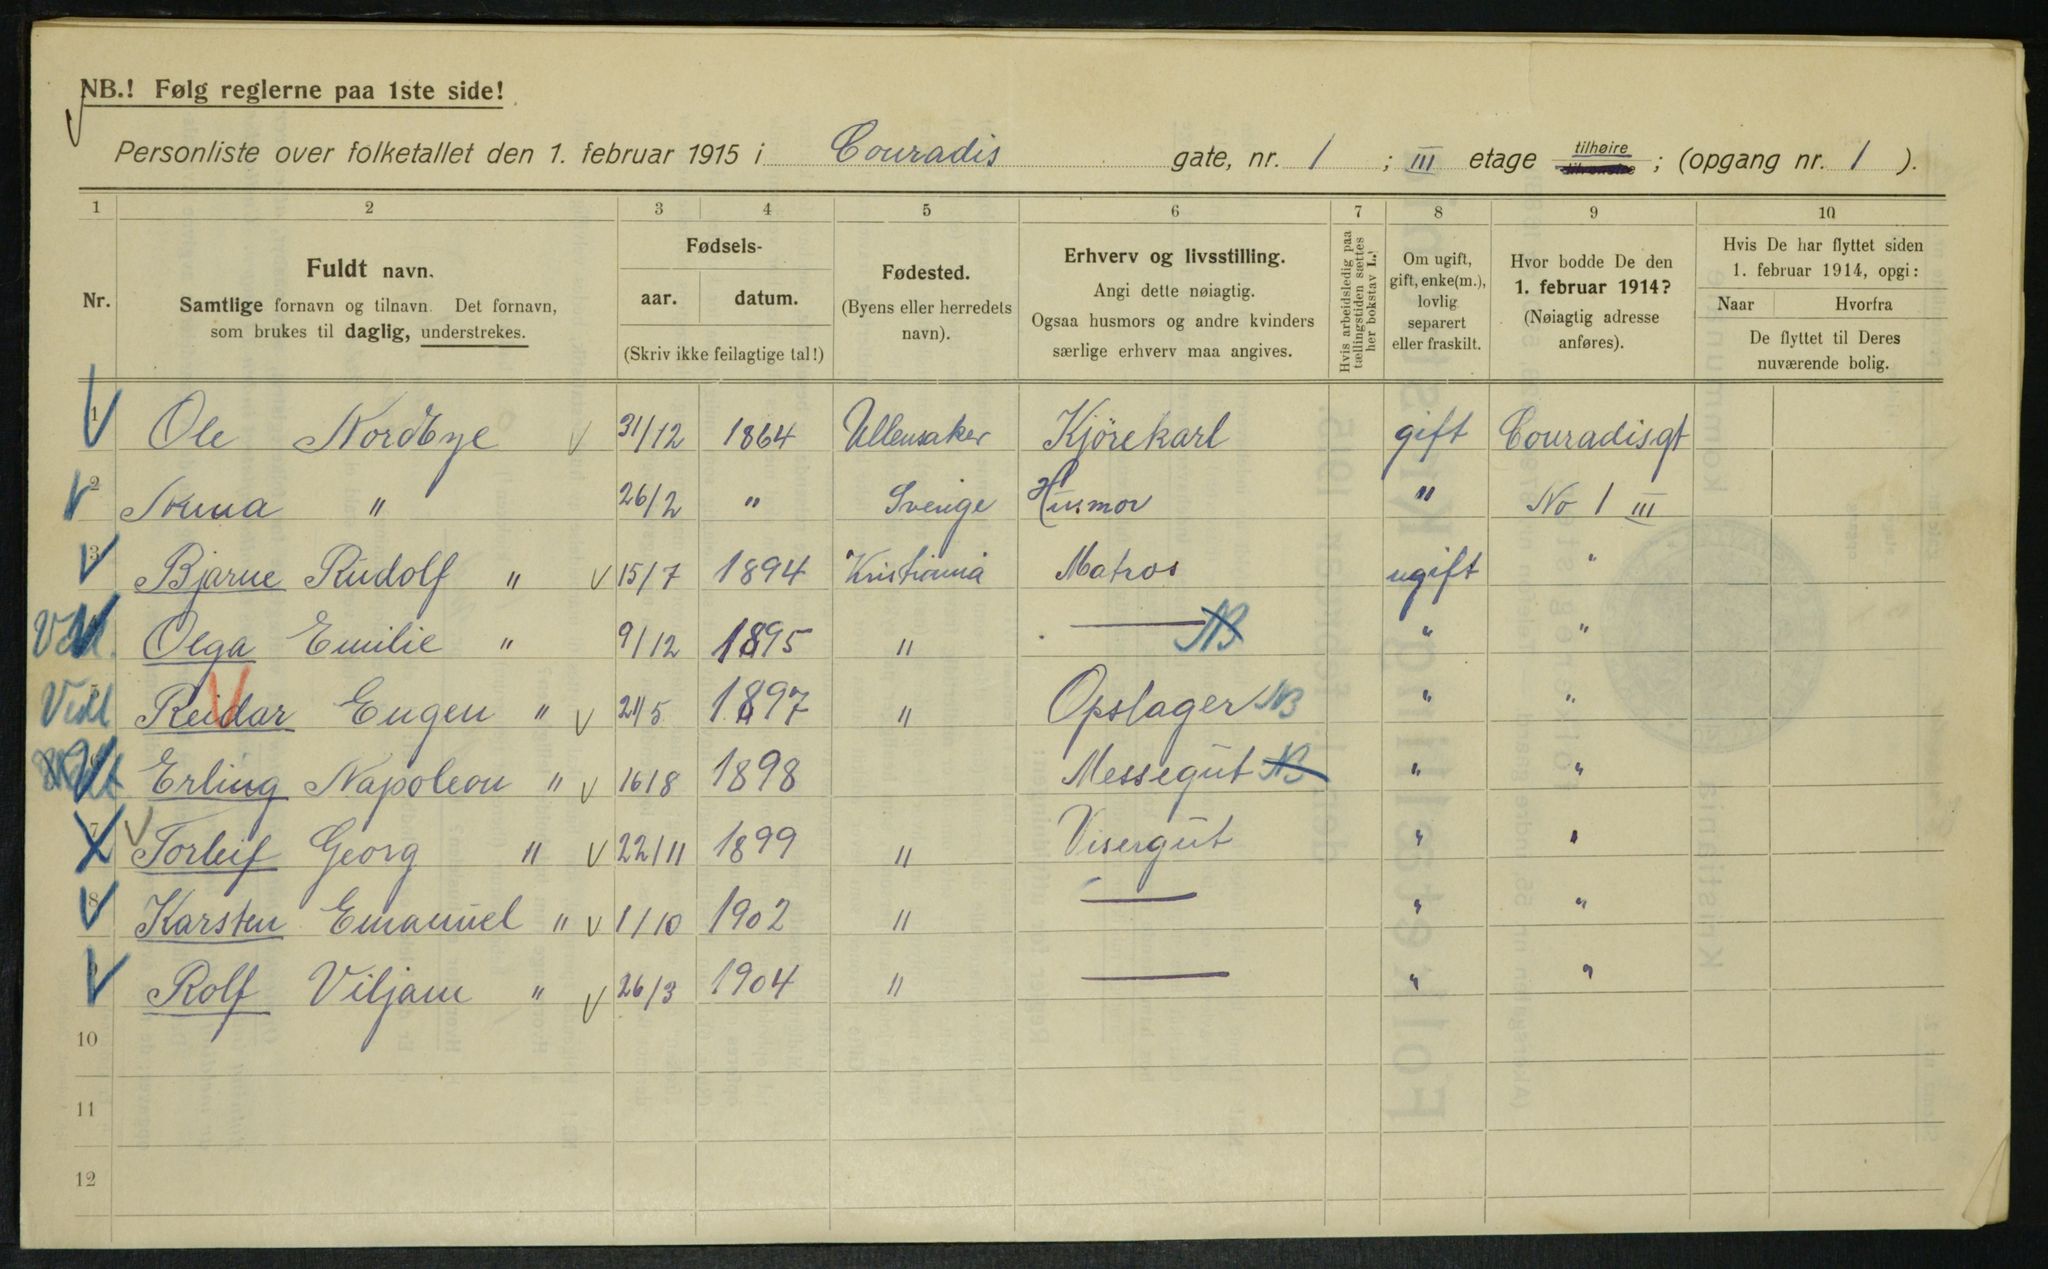 NB.! Følg reglerne paa 1ste side!
Personliste over folketallet den 1. februar 1915 i Conradis gate, nr. 1 ; III etage tilhøire ; (opgang nr. 1 ).
1 2 3 4 5 6 7 8 9 10
Nr.
Fuldt navn.
Samtlige fornavn og tilnavn. Det fornavn,
som brukes til daglig, understrekes.
Fødsels-
aar. datum.
(Skriv ikke feilagtige tal!)
Fødested.
(Byens eller herredets
navn).
Erhverv og livsstilling.
Angi dette nøiagtig.
Ogsaa husmors og andre kvinders
særlige erhverv maa angives.
Hvis arbeidsledig paa
tællingstiden sættes
her bokstav L.!
Om ugift,
gift, enke(m.),
lovlig
separert
eller fraskilt.
Hvor bodde De den
1. februar 1914?
(Nøiagtig adresse
anføres).
Hvis De har flyttet siden
1. februar 1914, opgi:
Naar Hvorfra
De flyttet til Deres
nuværende bolig.
1 Ole Nordbye 31/12 1864 Ullensaker Kjørekarl gift Conradisgt
2 Anna " 26/2 " Sverige Husmor " No 1 III
3 Bjarne Rudolf " 15/7 1894 Kristiania Matros ugift "
Olga Emilie " 9/12 1895 " — NB " "
5 Reidar Eugen " 21/5 1897 " Opslager NB " "
6 Erling Napoleon " 16/8 1898 Messegut NB " "
7 Torleif Georg " 22/11 1899 " Visergut " "
8 Karsten Emanuel " 1/10 1902 " — " "
9 Rolf Viljam " 26/3 1904 " — " "
10
11
12